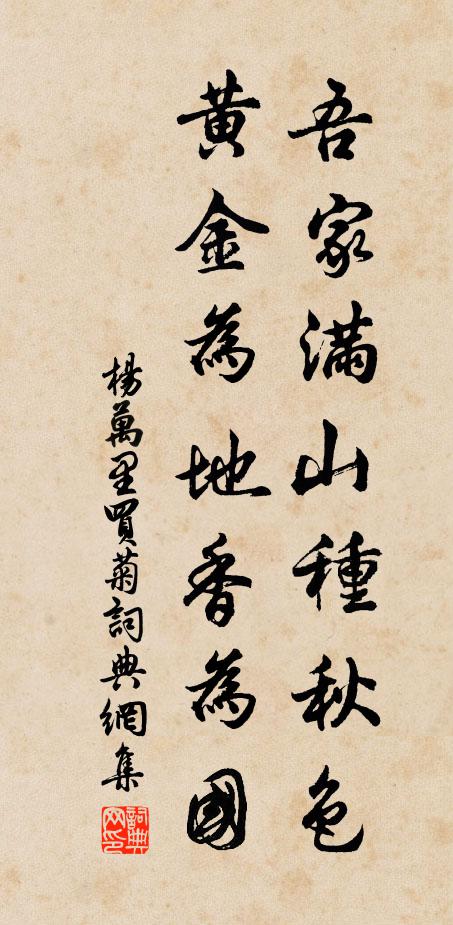 吾家滿山種秋色
黃金為地香為國
楊萬里買菊詞典網集
詞典網印